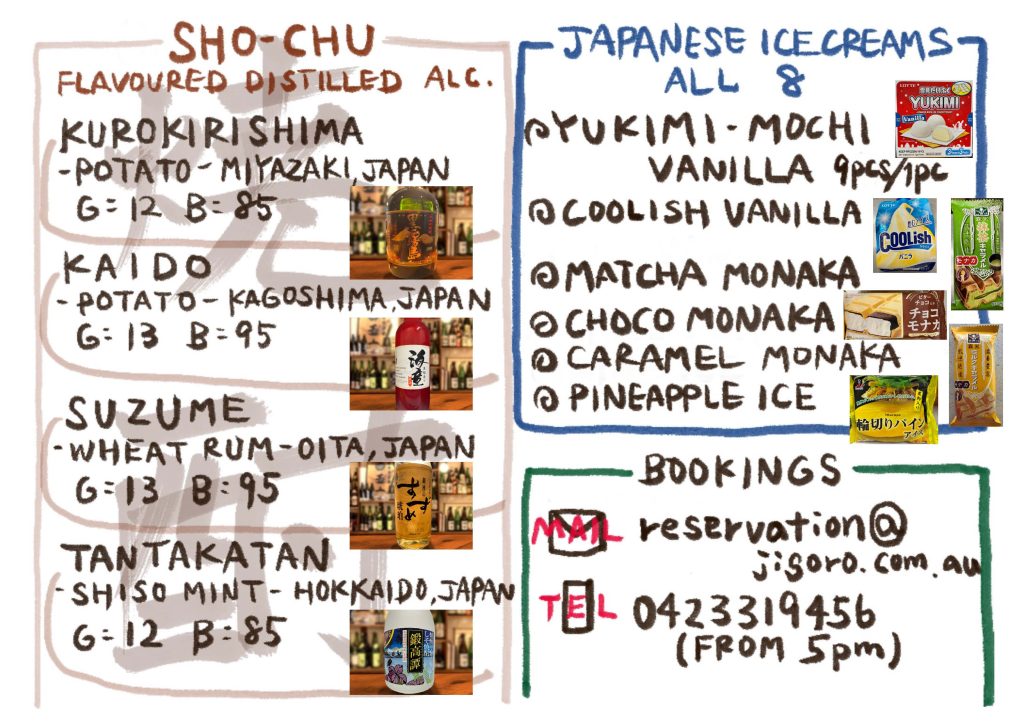 SHO-CHU
FLAVOURED DISTILLED ALC.
KUROKIRISHIMA
-POTATO-MIYAZAKI, JAPAN
G=12 B=85
KAIDO
-POTATO-KAGOSHIMA, JAPAN
G=13 B=95
海童
SUZUME
-WHEAT RUM-OITA, JAPAN
G=13 B=95
すずめ
TANTAKATAN
-SHISO MINT-HOKKAIDO, JAPAN
G=12 B=85
鍛高譚
JAPANESE ICE CREAMS
ALL 8
YUKIMI-MOCHI
VANILLA 9pcs/1pc
LOTTE
YUKIMI
Vanilla
COOLISH VANILLA
COOLish
バニラ
MATCHA MONAKA
モナカ
CHOCO MONAKA
チョコ
モナカ
CARAMEL MONAKA
PINEAPPLE ICE
輪切りパイン
アイス
BOOKINGS
MAIL reservation@
jigoro.com.au
TEL 0423319456
(FROM 5pm)